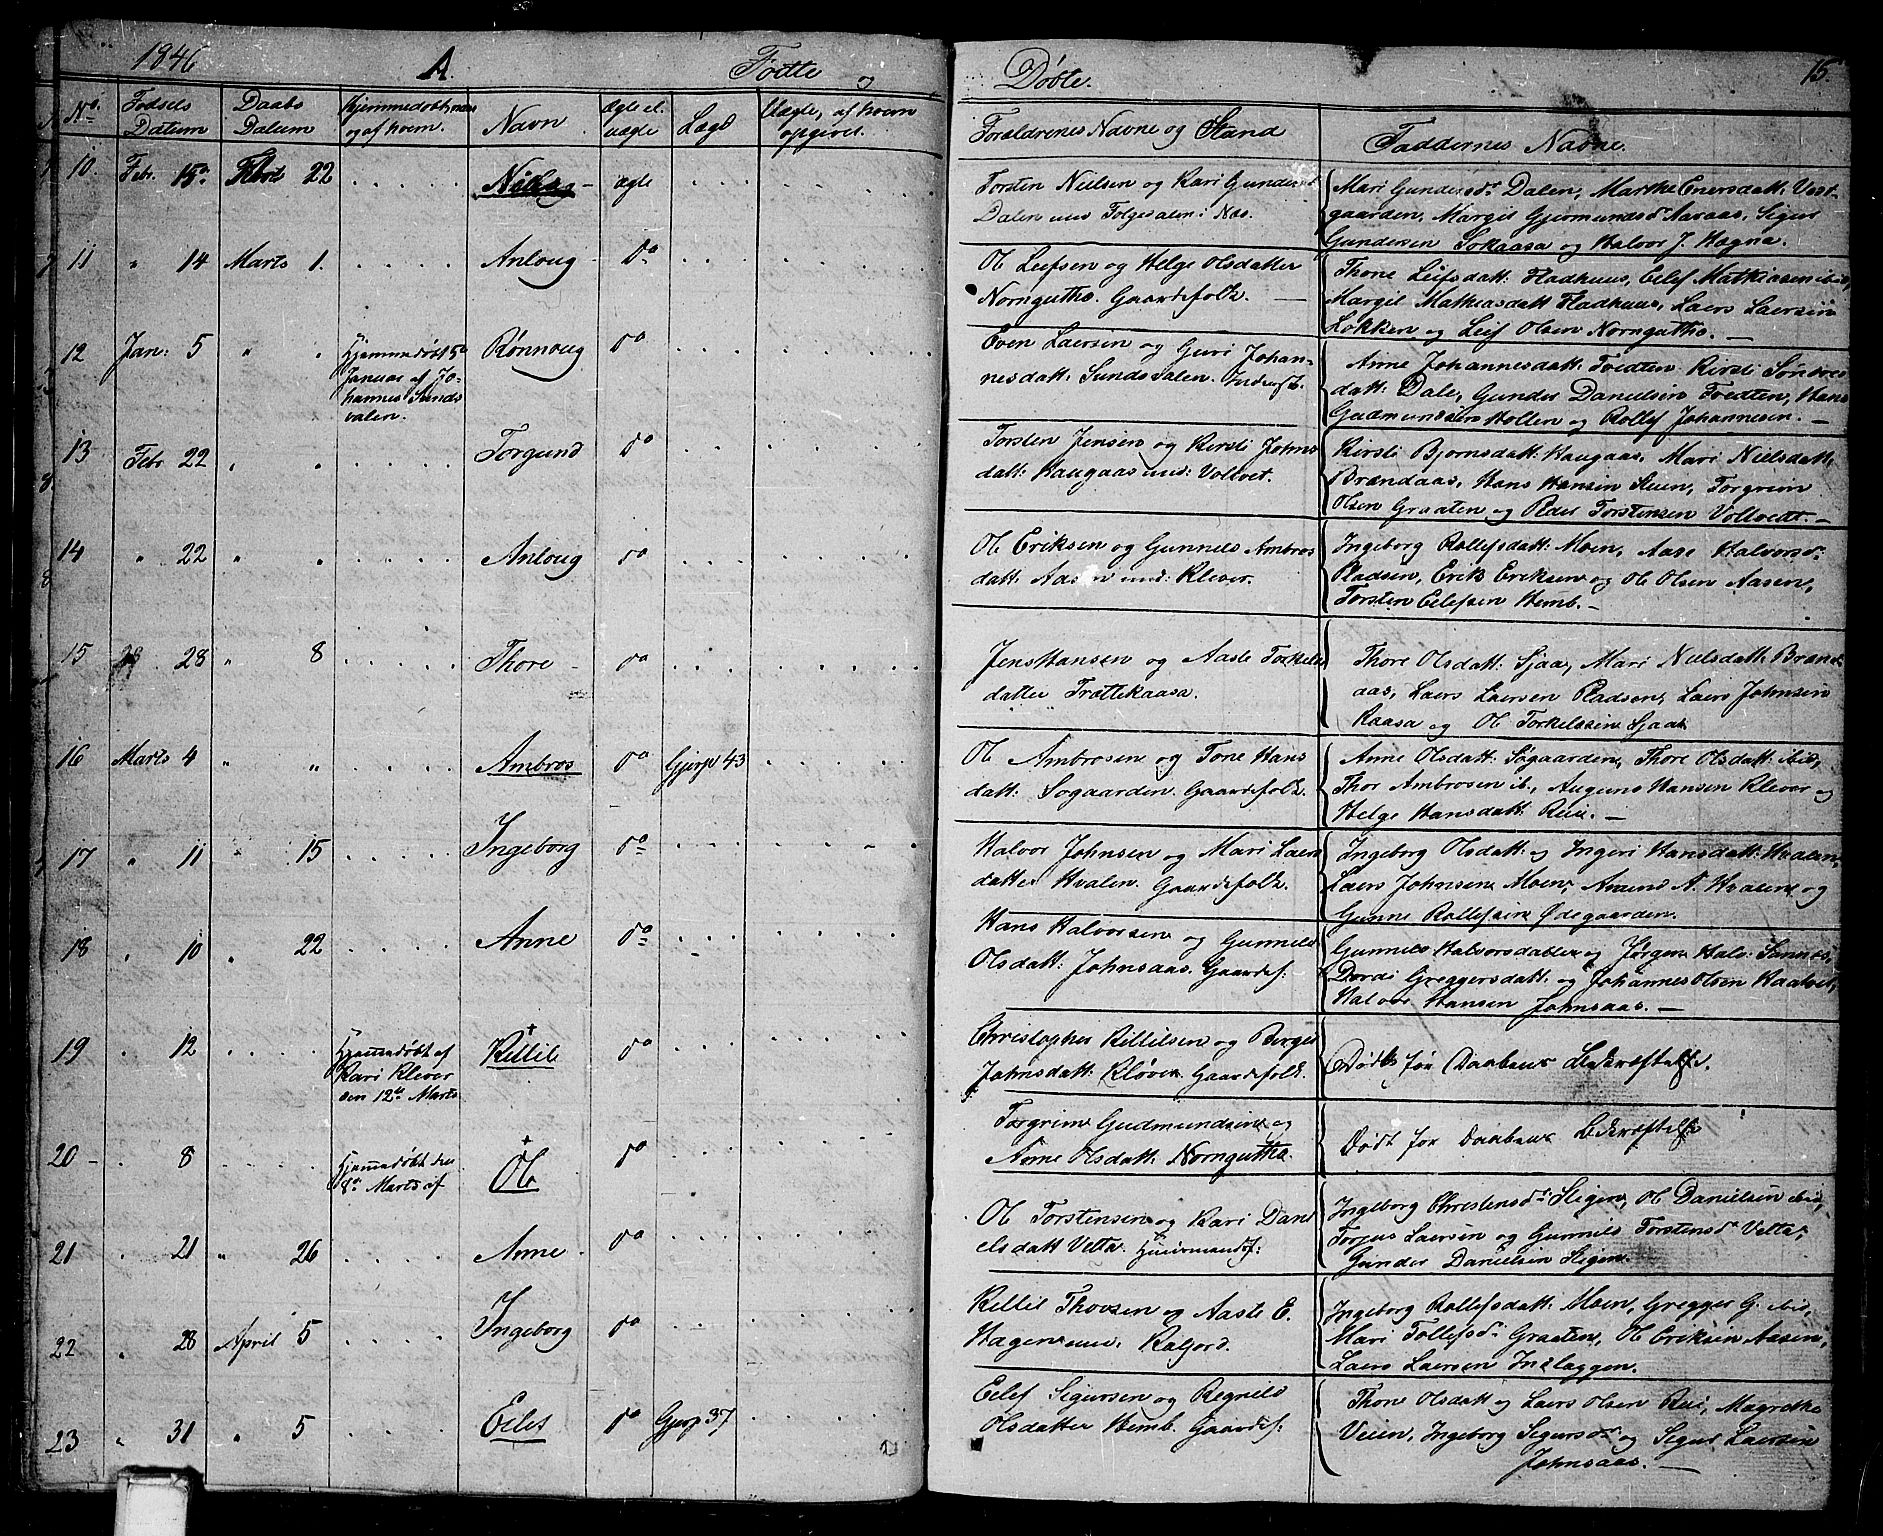 1846 A. Fødte
Døbte. 15
No. Fødsels Datum Daabs Datum Hjemmedøbt, naar og af hvem. Navn Ægte el. uægte Lægd Uægte, af hvem opgivet.
Forældrenes Navne og Stand Faddernes Navne.
10 Febr. 15de 22 Ægte
Torsten Nielsen og Kari Gundersd.
Dalen und. Følgesalen i Næs.
Mari Gundersdr. Dalen, Marthe Enersdatt. Vest-
gaarden, Margit Gjermundsd. Aaraas, Sigur
Gundersen Sokaasa og Halvor J. Hagna.
11 " 14 Marts 1. Anloug do
Ol Leifsen og Helge Olsdatter
Norngutha. Gaardefolk.
Thone Leifsdatt. Fladhuus, Eilef Mathiasen ibid,
Margit Mathiasdatt. Fladhuus, Laers Laersen
Løkken og Leif Olsen Norngutha.
12 Jan: 5 " " Hjemmedøbt 5te Januar af Johannes Sundsvalen. Rønnoug do
Even Laersen og Guri Johan-
nesdatt. Sundsvalen. Inderst.
Anne Johannesdatt. Tvedten, Kirsti Søndre
datt. Dale, Gunder Danielsen Tvedten, Hans
Gudmundsen Holten og Rollef Johannesen.
13 Febr. 22 " " Torgund do
Torsten Jensen og Kirsti Johns
datt. Haugaas und: Vollvet.
Kirsti Bjornsdatt. Haugaas, Mari Nielsdatt.
Brændaas, Hans Hansen Steen, Torgrim
Olsen Graaten og Peder Torstensen Vollvedt.
14 " 22 " " Anloug do
Ol Eriksen og Gunnild Ambros
datt. Aasen und: Klever.
Ingeborg Rollefsdatt. Moen, Aase Halvorsd.
Pladsen, Erik Eriksen og Ol Olsen Aasen,
Torsten Eilefsen Hemb.
15 28 " 8 Thore do
Jens Hansen og Aaste Torkels
datter Trættekaasa.
Thore Olsdatt. Sjaa, Mari Nielsdatt. Brænd
aas, Laers Laersen Pladsen, Laers Johnsen
Kaasa og Ol Torkelssen Sjaa
16 Marts 4 " " Ambros do Gjerp 43
Ol Ambrosen og Tone Hans
datt. Søgaarden. Gaardefolk.
Anne Olsdatt. Søgaarden, Thore Olsdatt. ibid,
Thor Ambrosen ib., Augund Hansen Klever og
Helge Hansdatt. Reie.
17 " 11 " 15 Ingeborg do
Halvor Johnsen og Mari Laers
datter Hvalen. Gaardefolk.
Ingeborg Olsdatt. og Ingeri Hansdatt. Hvalen,
Laers Johnsen Moen, Amund A. Hvalen og
Gunne Rollefsen Ødegaarden.
18 " 10 " 22 Anne do
Hans Halvorsen og Gunnild
Olsdatt. Johnsaas. Gaardef:
Gunnild Halvorsdatter og Jørgen Halv:
Dordi Greggersdatt. og Johannes Olsen Haatvet,
Halvor Hansen Johnsaas.
19 " 12 Hjemmedøbt af Kari Klever den 12te Marts + Kittil do
Christopher Kittilsen og Børgit
Johnsdatt. Kløver Gaardefolk.
Død før Daabens Bekræftelse.
20 " 8 Hjemmedøbt den 8de Marts af + Ol do
Torgrim Gudmundsen og
Anne Olsdatt. Norngutha.
Dødt før Daabens Bekræftelse
21 " 21 " 26 Anne do
Ol Torstensen og Kari Dani
elsdatt. Velta. Huusmandsf:
Ingeborg Christensd. Stigen, Ol Danielsen ibid,
Torjus Laersen og Gunnild Torstensd. Velta,
Gunder Danielsen Stigen.
22 " 28 April 5 Ingeborg do
Kittil Thovsen og Aaste E.
Hagen und. Kaljord.
Ingeborg Rollefsdatt. Moen, Gregger G. ibid,
Mari Tollefsd. Graaten, Ol Eriksen Aasen,
Laers Laersen Indlaggen.
23 " 31 " 5 Eilef do Gjerp 37
Eilef Sigursen og Regnild
Olsdatter Hemb. Gaardef:
Thone Olsdatt. og Laers Olsen Reie, Magrethe
Veien, Ingeborg Sigursd. og Sigur Laersen
Johnsaas.